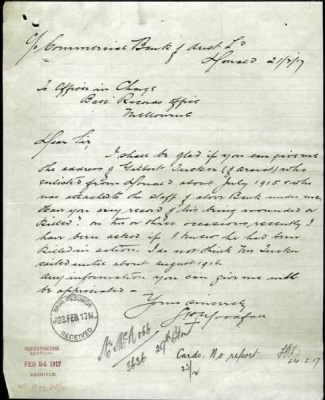 c/o Commercial Bank of Aust Ld
Donald 21/2/17
To Officer in Charge
Base Records Office
Melbourne
Dear Sir
I shall be glad if you can give me
the address of Gilbert Tucker (of Ararat) who
enlisted from Donald about July 1915 & who
was attached to the staff of above Bank under me
Have you any record of his being wounded or
killed? on two or three occasions, recently I
have been asked if I knew he had been
killed in action. I do not think Mr Tucker
sailed until about August 1916
Any information you can give me will
be appreciated –
Yours sincerely
BASE RECORDS
22 FEB 17
RECEIVED
CORRESPONDENCE
SECTION
FEB 24 1917
RECEIVED
3636
29th Bn
Cards. No report
23/2
24.2.17